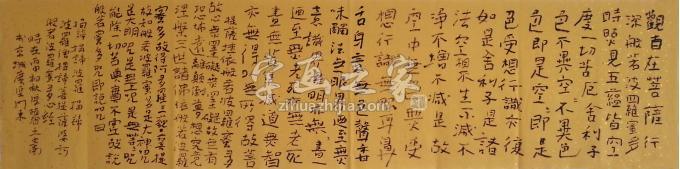 觀自在菩薩行
深般若波羅蜜多
時照見五蘊皆空
度一切苦厄舍利子
色不異空空不異色
色即是空空即是
色受想行識亦復
如是舍利子是諸
法空相不生不滅不
垢不淨不增不減是故
空中無色無受
想行識無眼耳鼻
舌身意無色聲香
味觸法無眼界乃至無
意識界無無明亦無無明
盡乃至無老死亦無老死
盡無苦集滅道無智
亦無得以無所得故菩
提薩埵依般若波羅蜜多故
心無罣礙無罣礙故無有
恐怖遠離顛倒夢想究竟
涅槃三世諸佛依般若波羅
蜜多故得阿耨多羅三藐三菩提
故知般若波羅蜜多是大神咒
是大明咒是無上咒是無等等咒
能除一切苦真實不虛故說
般若波羅蜜多咒即說咒曰
揭諦揭諦波羅揭諦
波羅僧揭諦菩提薩婆訶
般若波羅蜜多心經
字画之家
zihuazhijia.com